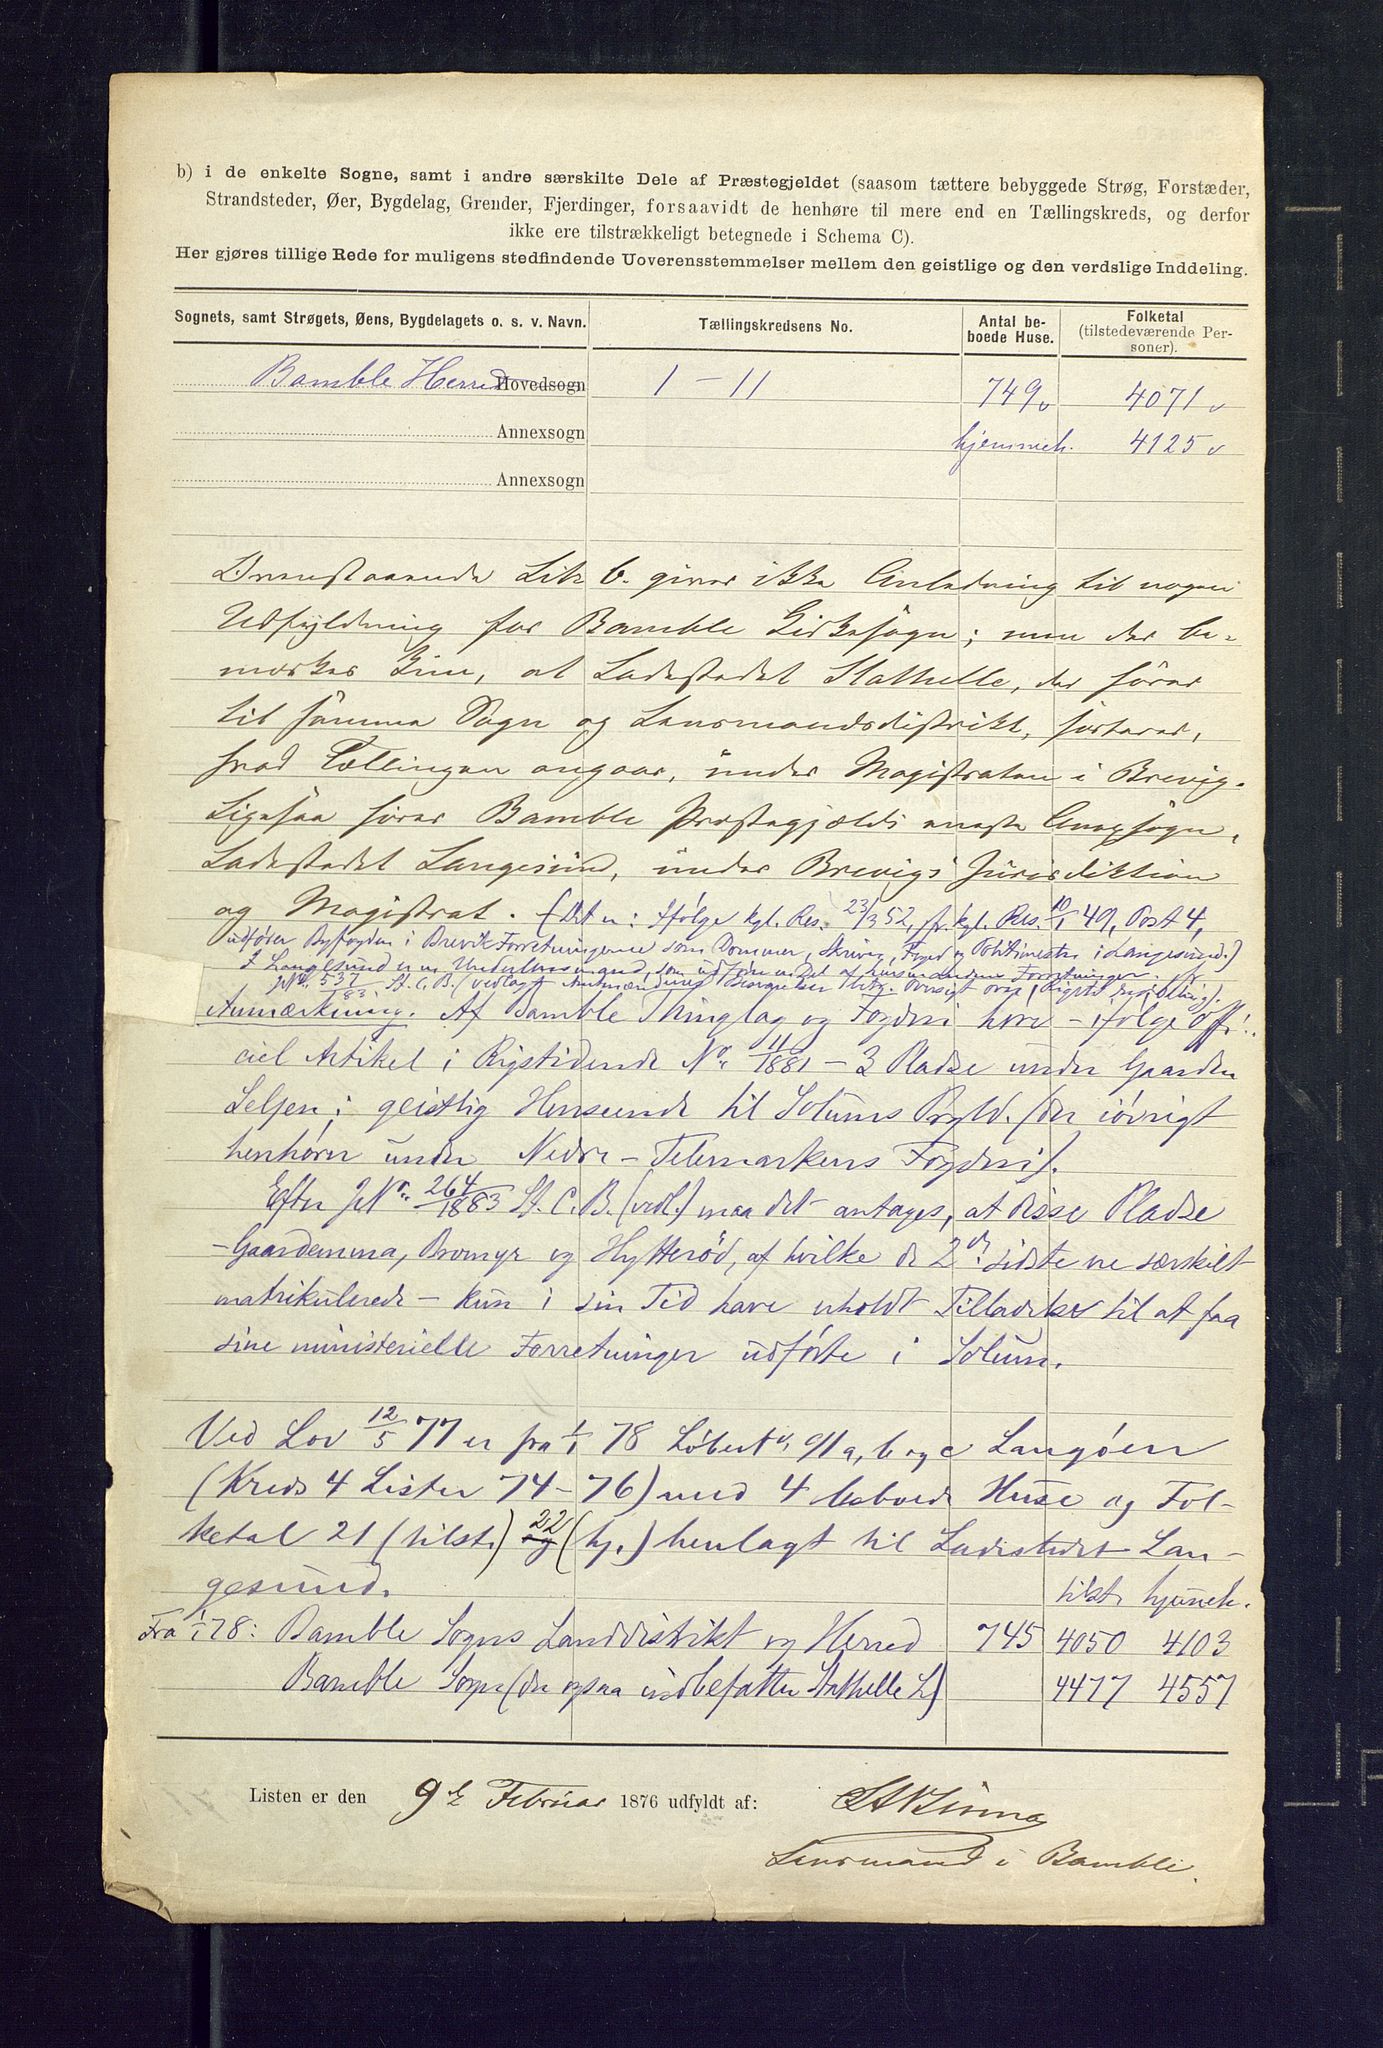 b) i de enkelte Sogne, samt i andre særskilte Dele af Præstegjeldet (saasom tættere bebyggede Strøg, Forstæder,
Strandsteder, Øer, Bygdelag, Grender, Fjerdinger, forsaavidt de henhøre til mere end en Tællingskreds, og derfor
ikke ere tilstrækkeligt betegnede i Schema C).
Her gjøres tillige Rede for muligens stedfindende Uoverensstemmelser mellem den geistlige og den verdslige Inddeling.
Sognets, samt Strøgets, Øens, Bygdelagets o. s. v. Navn.
Tællingskredsens No.
Antal beboede Huse.
Folketal (tilstedeværende Personer).
Bamble Herred Hovedsogn 1 - 11 749 4071
Annexsogn hjemmeh. 4125
Annexsogn
Ovenstaaende Litr b. giver ikke Anledning til nogen
Udfyldning for Bamble Kirkesogn; men der be-
mærkes kun, at Ladestedet Stathelle, der hører
til samme Sogn og Lensmandsdistrikt, sorterer,
hvad Tællingen angaar, under Magistraten i Brevig.
Ligesaa hører Bamble Præstegjælds eneste Annexsogn,
Ladestedet Langesund, under Brevigs Jurisdiktion
og Magistrat. (Det er: Ifølge kgl. Res. 23/3 52, jfr. kgl. Res. 10/1 49, Post 4,
udfører Byfogden i Brevik Forretningerne som Dommer, Skriver, Foged og Politimester i Langesund.)
I Langesund er en Underlensmand, som udfører en Del af Lensmandens Forretninger. jfr
JNr. 537/83 St. C. B. (vedlagt Amtmændenes Besvarelser betr. Oversigt over Rigets Inddeling).
Anmærkning. Af Bamble Thinglag og Fogderi høre - ifølge offi-
ciel Artikel i Rigstidende No. 11/1881 - 3 Pladse under Gaarden
Seljen i geistlig Henseende til Solums Prgld. (der iøvrigt
henhører under Nedre-Telemarkens Fogderi).
Efter JNr. 264/1883 St. C. B. (vedl.) maa det antages, at disse Pladse
- Gaardemma, Bromyr og Hytterød, af hvilke de 2de sidste ere særskilt
matrikulerede - kun i sin Tid have erholdt Tilladelse til at faa
sine ministerielle Forretninger udførte i Solum.
Ved Lov 12/5 77 er fra 1/1 78 Løbenr. 91 a, b og c Langøen
(Kreds 4 Lister 74-76) med 4 beboede Huse og Fol-
ketal 21 (tilst.) og 22 (hj.) henlagt til Ladestedet Lan-
gesund.
tilst. hjemmeh.
Fra 1/1 78: Bamble Sogns Landdistrikt og Herred 745 4050 4103
Bamble Sogn (der ogsaa indbefatter Stathelle L) 4477 4557
Listen er den 9de Februar 1876 udfyldt af:
Lensmand i Bamble.